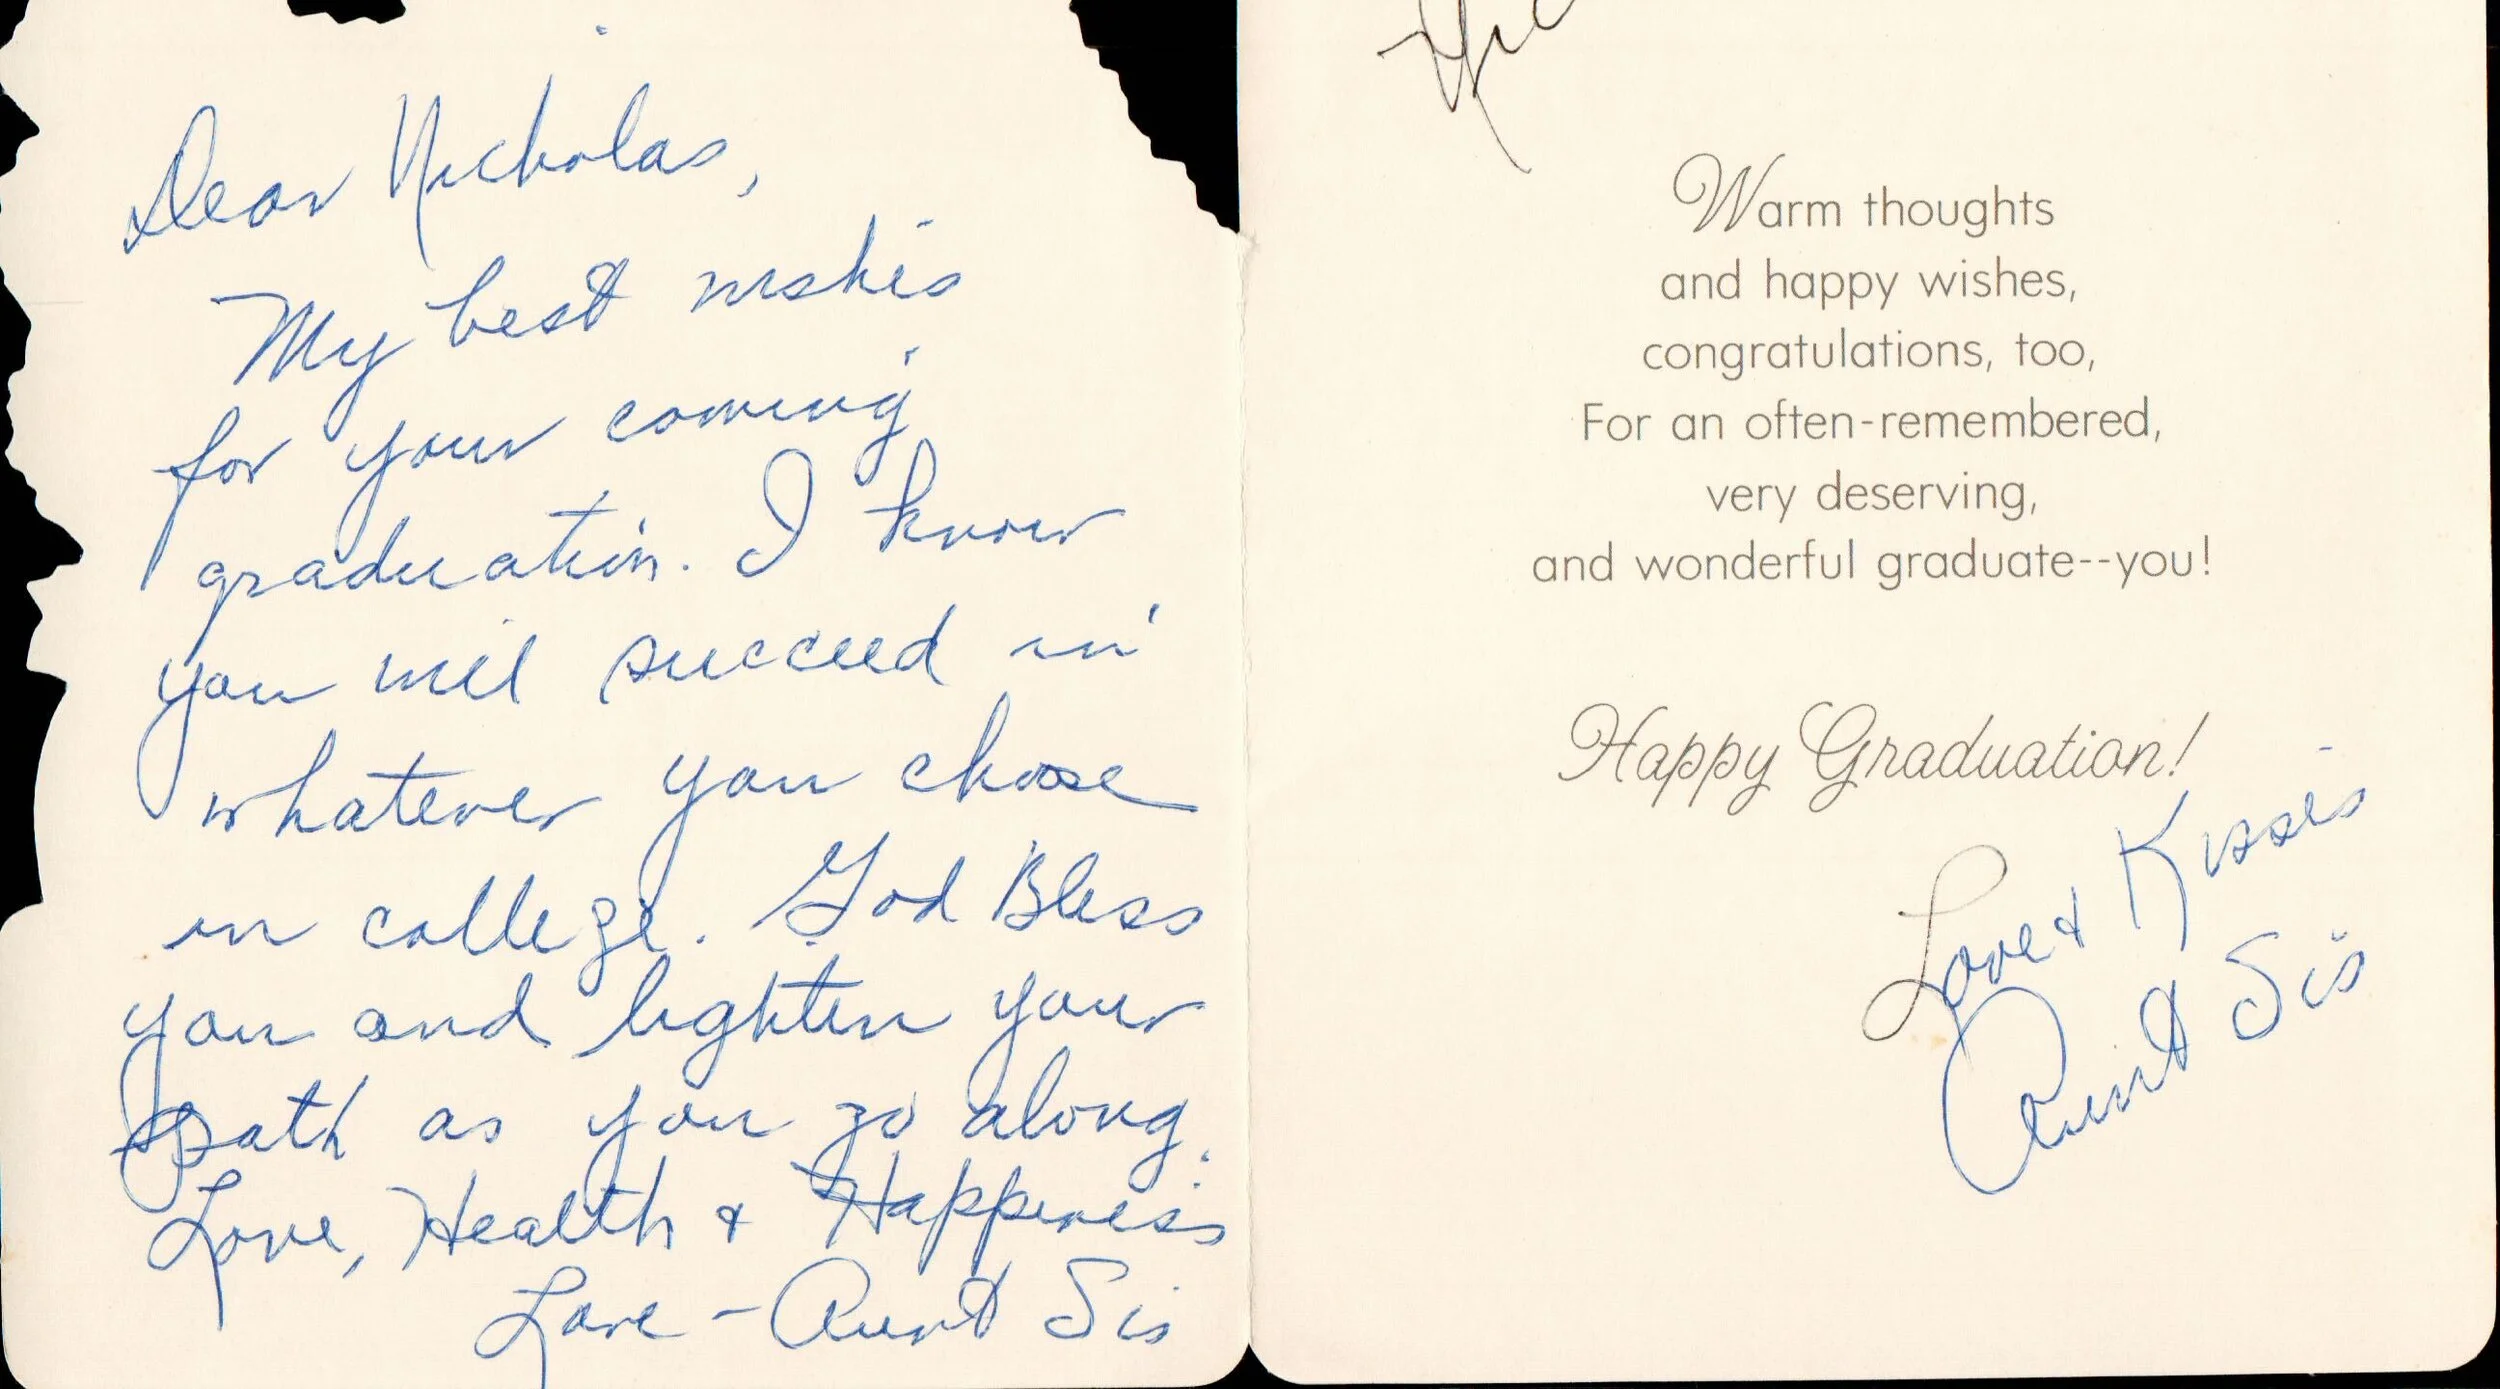 Dear Nicholas,
My best wishes
for your coming
graduation. I know
you will succeed in
whatever you choose
in college. God Bless
you and lighten your
path as you go along.
Love, Health & Happiness
Love - Aunt Sis
Warm thoughts
and happy wishes,
congratulations, too,
For an often-remembered,
very deserving,
and wonderful graduate--you!
Happy Graduation!
Love & Kisses -
Aunt Sis